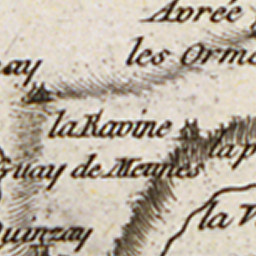 Avrée
les Orm
ay
la Ravine
la p
Guay de Meunes
la V
Quinzay